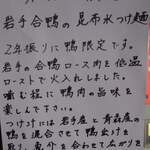 岩手合鴨の昆布水つけ麺
2年振りに鴨限定です。
岩手の合鴨ロース肉を低温
ローストで火入れしました。
噛む程に鴨肉の旨味を
楽しんで下さい。
つけ汁には岩手産と青森産の
鴨を混合させて鴨出汁を
取り、魚介を合わせて広がりを